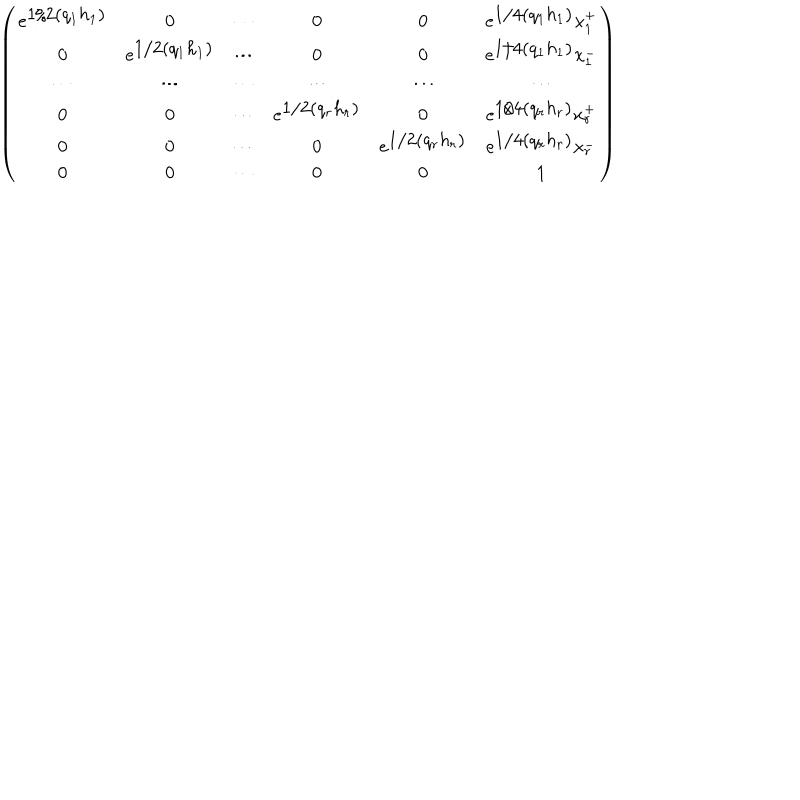 e^{1%2(q_1h_1)} 0 ⋯ 0 0 e^{1/4(q_1h_1)}x_1^+
0 e^{1/2(q_1h_1)} ⋯ 0 0 e^{1†4(q_1h_1)}x_1^-
⋯ ⋯ ⋯ ⋯ ⋯ ⋯
0 0 ⋯ e^{1/2(q_rh_r)} 0 e^{1⊗4(q_rh_r)}x_r^+
0 0 ⋯ 0 e^{1/2(q_rh_r)} e^{1/4(q_rh_r)}x_r^-
0 0 ⋯ 0 0 1